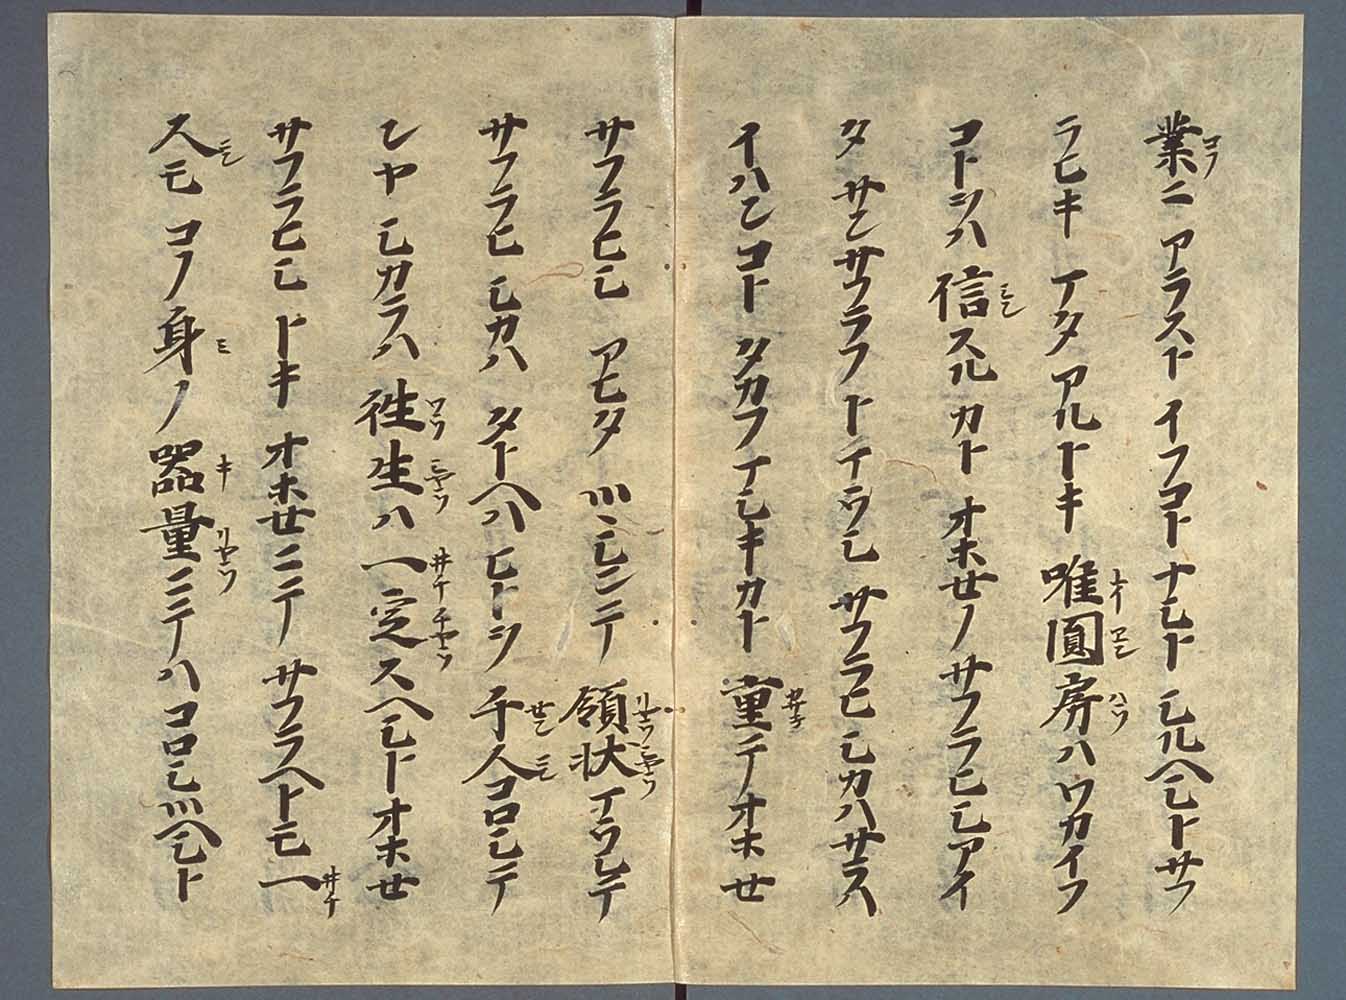 業ニ アラスト イフコト ナシト シルヘシト サフ
ラヒキ マタ アルトキ 唯圓房ハ ワカイフ
コトヲハ 信スルカト オホセノ サフラヒシアイ
タ サンサフラフト マウシ サフラヒシカハ サラハ
イハンコト タカフマシキカト 重テ オホセ
サフラヒシ アヒタ ツヽシンテ 領状マウシテ
サフラヒシカハ タトヘハ ヒトヲ 千人コロシテ
ンヤ シカラハ 往生ハ 一定スヘシト オホセ
サフラヒシ トキ オホセニテ サフラヘトモ 一
人モ コノ 身ノ 器量ニテハ コロシツヘシト